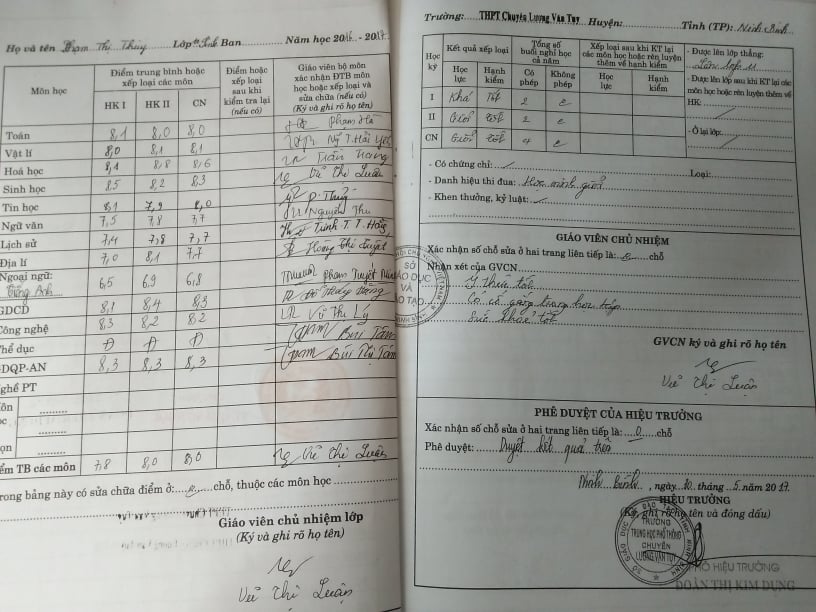 Họ và tên Phạm Thị Thùy Lớp Ban Năm học 2016 - 2017
Môn học
Điểm trung bình hoặc xếp loại các môn
HK I HK II CN
Điểm hoặc xếp loại sau khi kiểm tra lại (nếu có)
Giáo viên bộ môn xác nhận ĐTB môn học hoặc xếp loại và sửa chữa (nếu có)
(Ký và ghi rõ họ tên)
Toán 8,1 8,0 8,0
Vật lí 8,0 8,1 8,1
Hoá học 8,4 8,8 8,6 Trần Trang
Sinh học 8,5 8,2 8,3 Vũ Thị Luận
Tin học 8,1 7,9 8,0
Ngữ văn 7,5 7,8 7,7 Nguyễn Thu
Lịch sử 7,4 7,8 7,7
Địa lí 7,0 8,1 7,7
Ngoại ngữ: 6,5 6,9 6,8 Phạm Tuyết
Tiếng Anh
GDCD 8,1 8,4 8,3
Công nghệ 8,3 8,2 8,2 Vũ Thị Lý
Thể dục Đ Đ Đ Bùi Tâm
GDQP-AN 8,3 8,3 8,3 Bùi Thị Tâm
Nghề PT
Điểm TB các môn 7,8 8,0 8,0 Vũ Thị Luận
Trong bảng này có sửa chữa điểm ở: chỗ, thuộc các môn học
Giáo viên chủ nhiệm lớp
(Ký và ghi rõ họ tên)
Vũ Thị Luận
Trường: THPT Chuyên Lương Văn Tụy Huyện: Tỉnh (TP): Ninh Bình
Học kỳ
Kết quả xếp loại
Học lực Hạnh kiểm
Tổng số buổi nghỉ học cả năm
Có phép Không phép
Xếp loại sau khi KT lại các môn học hoặc rèn luyện thêm về hạnh kiểm
Học lực Hạnh kiểm
I Khá Tốt 2
II Giỏi tốt 2
CN Giỏi tốt 4
- Được lên lớp thẳng:
Lên lớp 11
- Được lên lớp sau khi KT lại các môn học hoặc rèn luyện thêm về HK:
- Ở lại lớp:
- Có chứng chỉ: Loại:
- Danh hiệu thi đua: Học sinh giỏi
- Khen thưởng, kỷ luật:
GIÁO VIÊN CHỦ NHIỆM
Xác nhận số chỗ sửa ở hai trang liên tiếp là: chỗ
Nhận xét của GVCN:
Ý thức tốt
Có cố gắng trong học tập
Sức khoẻ tốt
GVCN ký và ghi rõ họ tên
Vũ Thị Luận
SỞ
GIÁO DỤC
VÀ
ĐÀO TẠO
PHÊ DUYỆT CỦA HIỆU TRƯỞNG
Xác nhận số chỗ sửa ở hai trang liên tiếp là: 0 chỗ
Phê duyệt: Duyệt kết quả trên
Ninh Bình, ngày tháng 5 năm 2017
HIỆU TRƯỞNG
(Ký, ghi rõ họ tên và đóng dấu)
TRƯỜNG
TRUNG HỌC PHỔ THÔNG
CHUYÊN
LƯƠNG VĂN TỤY
PHÓ HIỆU TRƯỞNG
ĐOÀN THỊ KIM DUNG